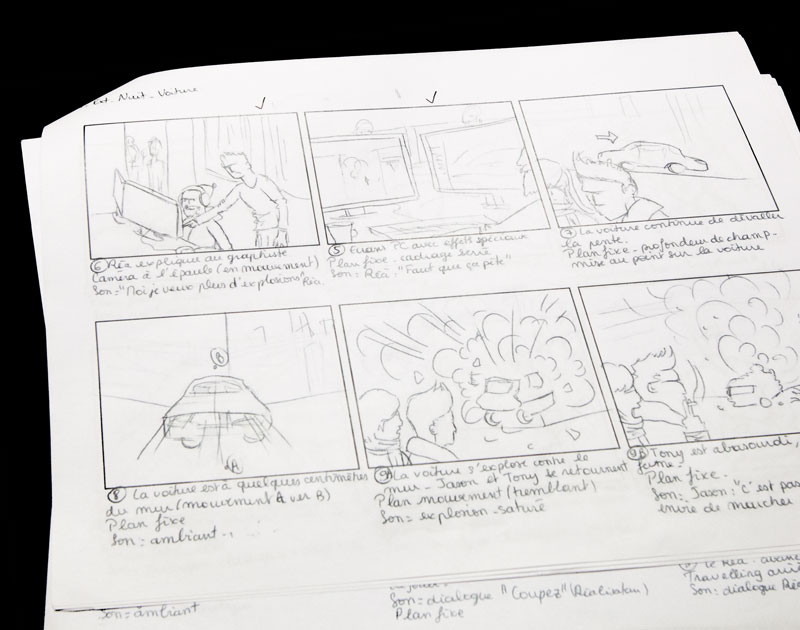 Ext. Nuit - Voiture
6 Réa explique au graphiste
Caméra à l'épaule (en mouvement)
Son: "Moi je veux plus d'explosions" Réa.
5 Ecrans PC avec effets spéciaux
Plan fixe - cadrage serré
Son: Réa: "Faut que ça pète"
7 La voiture continue de dévaller
la pente.
Plan fixe - profondeur de champ -
mise au point sur la voiture
B
A
8 La voiture est à quelques centimètres
du mur (mouvement A ver B)
Plan fixe
Son: ambiant
9 La voiture s'explose contre le
mur - Jason et Tony se retournent
Plan mouvement (tremblant)
Son= explosion - saturé
Tony est abasourdi,
fume.
Plan fixe.
Son: Jason: "C'est pas
envie de marcher
Son= ambiant
Son: dialogue "Coupez" (Réalisateur)
Plan fixe
le Réa
Travelling
Son: dialogue Réa